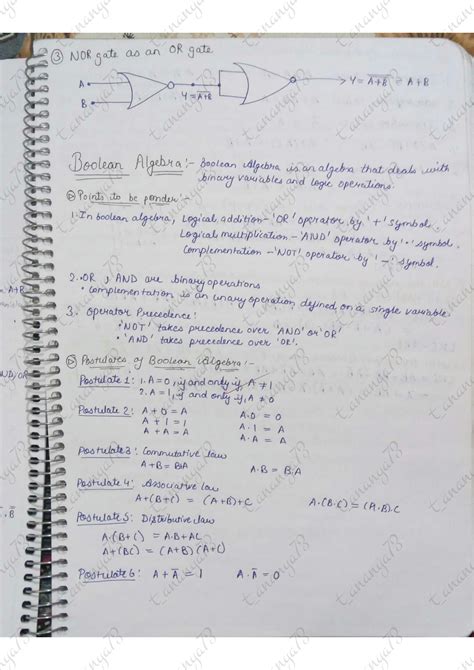 ③ NOR gate as an OR gate
A
B
Y = A+B
Y = A+B = A+B
Boolean Algebra:- Boolean Algebra is an algebra that deals with
binary variables and logic operations.
Points to be ponder:-
1. In boolean algebra, Logical addition - 'OR' operator by '+' symbol.
Logical multiplication - 'AND' operator by '·' symbol.
Complementation - 'NOT' operator by '-' symbol.
2. • OR, AND are binary operations
• Complementation is an unary operation defined on a single variable
3. Operator Precedence:
• 'NOT' takes precedence over 'AND' or 'OR'
• 'AND' takes precedence over 'OR'.
Postulates of Boolean Algebra:-
Postulate 1: 1. A = 0, if and only if, A ≠ 1
2. A = 1, if and only if, A ≠ 0
Postulate 2: A + 0 = A A.0 = 0
A + 1 = 1 A.1 = A
A + A = A A.A = A
Postulate 3: Commutative law
A+B = B+A A.B = B.A
Postulate 4: Associative law
A+(B+C) = (A+B)+C A.(B.C) = (A.B).C
Postulate 5: Distributive law
A.(B+C) = A.B+AC
A+(BC) = (A+B)(A+C)
Postulate 6: A + A̅ = 1 A.A̅ = 0
= A+R
AND/OR
. B̅
tananya73